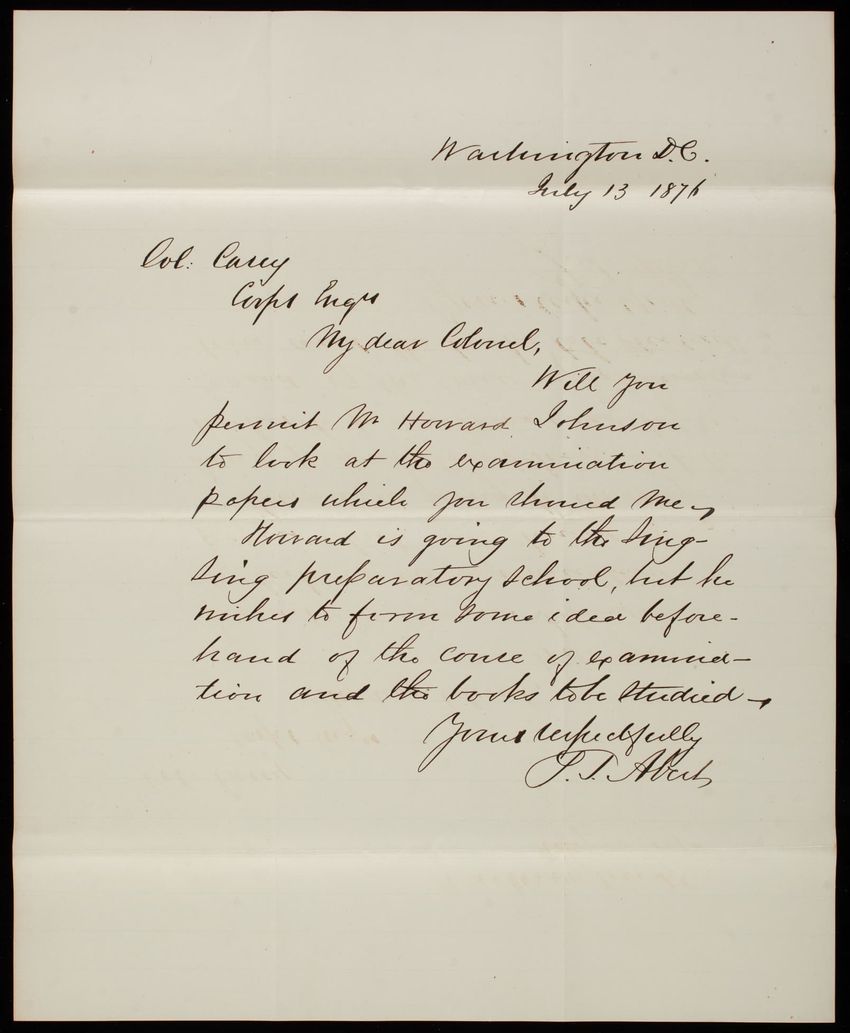 Washington D.C.
July 13 1876
Col: Casey
Corps Engrs
My dear Colonel,
Will you
permit Mr Howard Johnson
to look at the examination
papers which you showed me
Howard is going to the Sing-
Sing preparatory school, but he
wishes to form some idea before-
hand of the couse of examina-
tion and the books to be studied
Yours respectfully
S. T. Abert